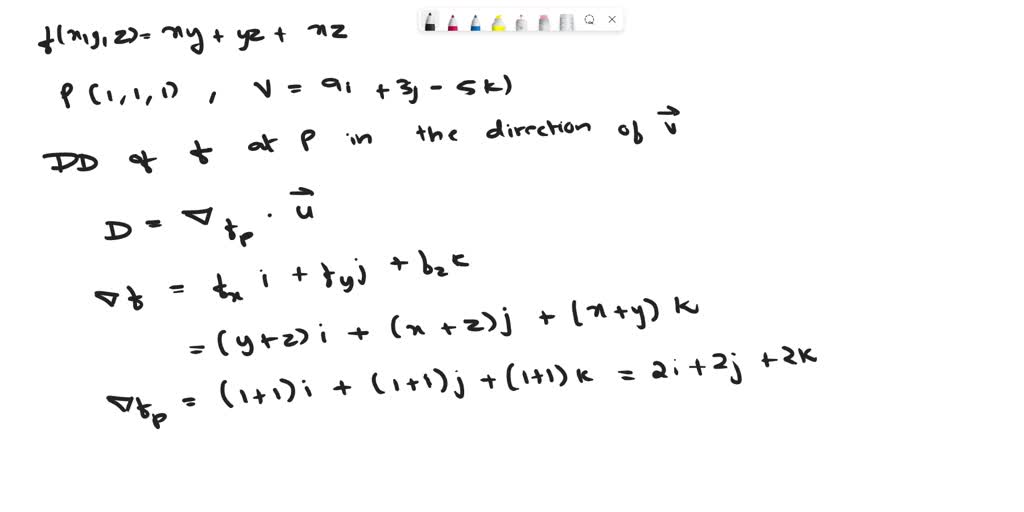 f(x,y,z) = xy + yz + xz
P (1,1,1) , V = 9i + 3j - 5k)
DD of f at P in the direction of v⃗
D = ∇f_p · u⃗
∇f = f_x i + f_y j + f_z k
= (y+z) i + (x+z) j + (x+y) k
∇f_p = (1+1) i + (1+1) j + (1+1) k = 2i + 2j + 2k